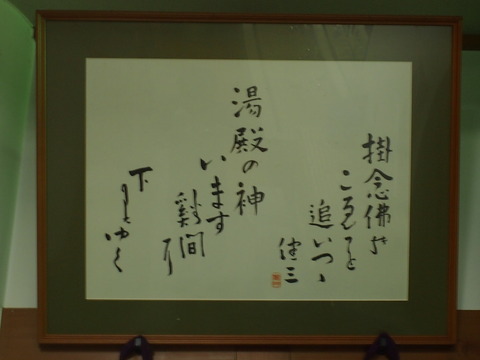 掛念佛の
こゑを
追いつゝ
健三
湯殿の神
います
谿間
下りゆく